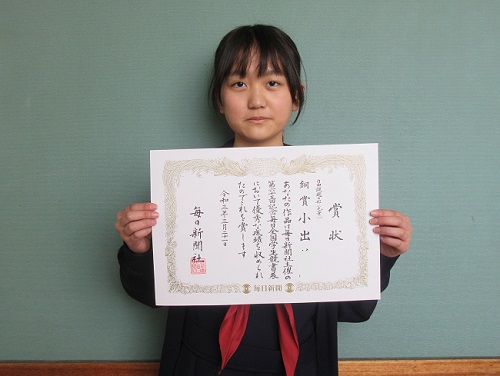 賞状
銅賞 小出
あなたの作品は毎日新聞社主催の
第六十回記念毎日全国学生競書展
において優秀な成績を収められ
たのでこれを賞します
令和三年三月二十一日
毎日新聞社
毎日新聞